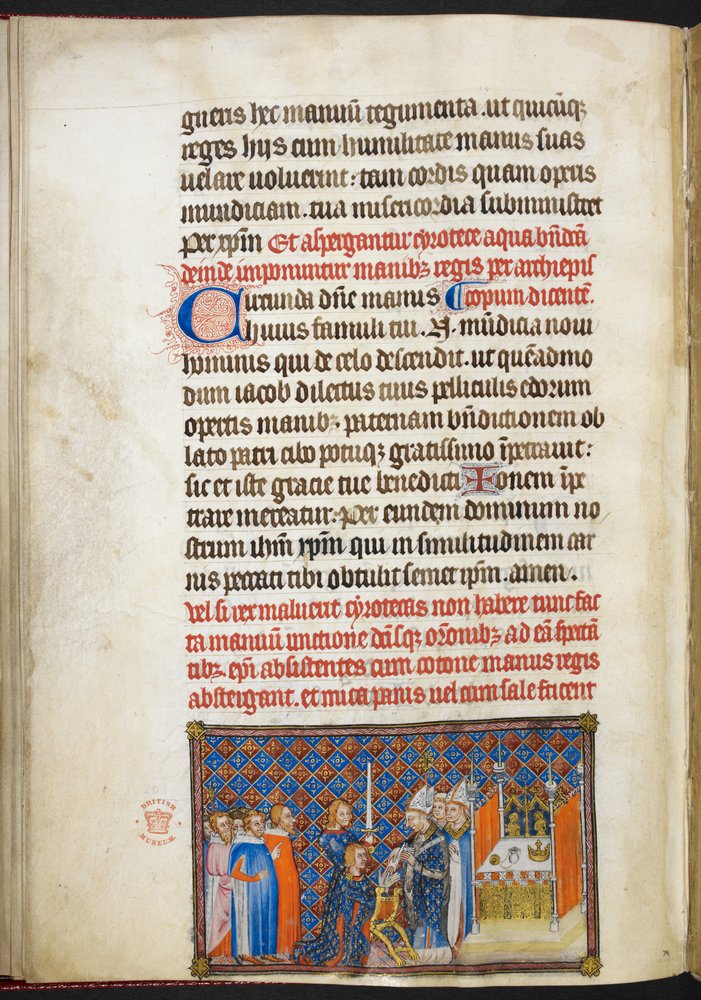 gneris hec manuū tegumenta. ut quicūq;
reges hijs cum humilitate manus suas
uelare uoluerint: tam cordis quam operis
mundiciam. tua misericordia subministret
Per xp̄m Et aspergantur cyrotece aqua bn̄dc̄a
deinde imponuntur manib; regis per archiepis
Circunda dn̄e manus copum dicentē.
huius famuli tui. N. mūdicia noui
hominis qui de celo descendit. ut quēadmo
dum iacob dilectus tuus pelliculis edorum
opertis manib; paternam bn̄dictionem ob
lato patri cibo potuq; gratissimo īpetrauit:
sic et iste gracie tue benedicti onem īpe
trare mereatur. Per eundem dominum no
strum ihm̄ xp̄m qui in similitudinem car
nis peccati tibi obtulit semet ip̄m. amen.
Vel si rex maluerit cyrotecas non habere tunc fac
ta manuū unctione dc̄isq; or̄onib; ad eā spectā
tib; ep̄i absistentes cum cotone manus regis
abstergant. et mica panis uel cum sale fricent
BRITISH
MUSEUM